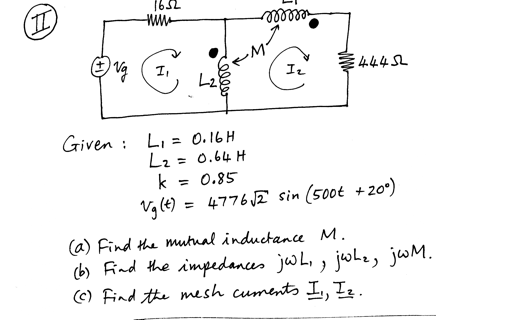 II
16Ω
L1
M
+
-
Vg
I1
L2
I2
444Ω
Given : L1 = 0.16H
L2 = 0.64 H
k = 0.85
Vg(t) = 4776√2 sin (500t + 20°)
(a) Find the mutual inductance M.
(b) Find the impedances jωL1, jωL2, jωM.
(c) Find the mesh currents I1, I2.